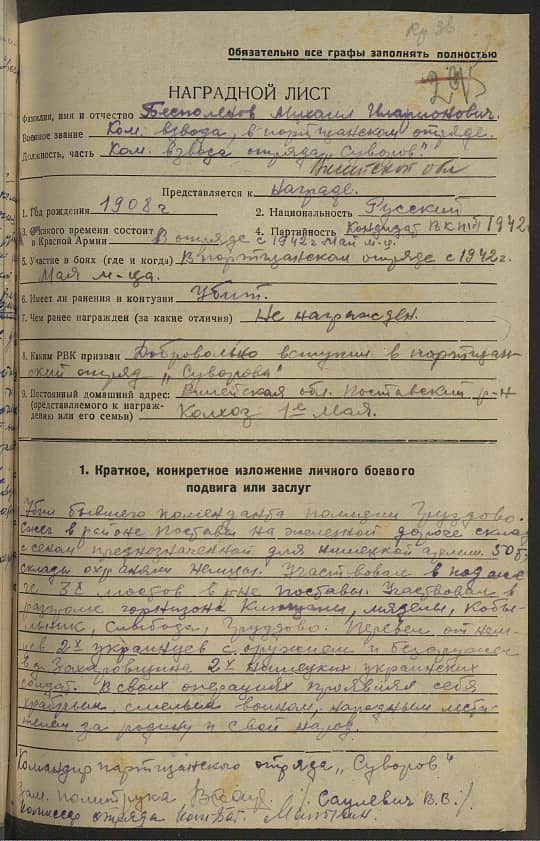 Обязательно все графы заполнять полностью
НАГРАДНОЙ ЛИСТ
Фамилия, имя и отчество Бесполенов Михаил Иларионович.
Военное звание Ком. взвода, в партизанском отряде.
Должность, часть Ком. взвода отряда „Суворов".
Вилейской обл
Представляется к Награде.
1. Год рождения 1908 г 2. Национальность Русский
3. С какого времени состоит в Красной Армии В отряде с 1942 г Май м-ц. 4. Партийность Кондидат ВКП(б) 1942
5. Участие в боях (где и когда) В партизанском отряде с 1942 г.
Мая м-ца.
6. Имеет ли ранения и контузии Убит.
7. Чем ранее награжден (за какие отличия) Не награжден.
8. Каким РВК призван Добровольно вступил в партизан-
ский отряд „Суворова"
9. Постоянный домашний адрес: Вилейская обл. Поставский р-н
(представляемого к награж-
дению или его семьи) Колхоз 1е Мая.
1. Краткое, конкретное изложение личного боевого
подвига или заслуг
Убил бывшего коменданта полиции Груздово.
Сжег в районе Поставы на железной дороге склад
с сеном предназначенной для нимецкой армии. 50
склады охраняли немцы. Участвовал в
38 мостов в р-не Поставы. Участвовал в
разгроме горнизона мяделы, Кобы-
льник, Слабода, Груздово. Перевел от нем-
цев 2х украинцев с оружием и
в д. Захаровщина 2х нимецких украинских
солдат. В своих операциях проявлял себя
храбрым, смелым воином, народным мсти-
телем за родину и свой народ.
Командир партизанского отряда „Суворов"
Зам. политрука / Саулевич В.В. /
Комиссар отряда